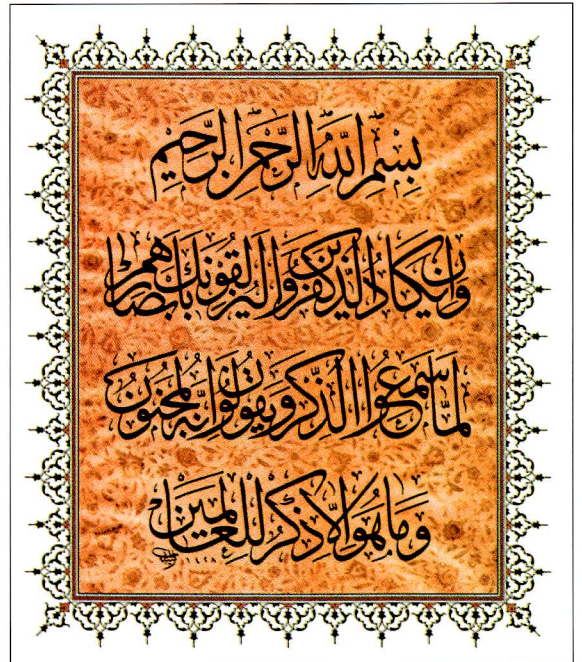 بِسْمِ اللَّهِ الرَّحْمَنِ الرَّحِيمِ
وَإِن يَكَادُ الَّذِينَ كَفَرُوا لَيُزْلِقُونَكَ بِأَبْصَارِهِمْ
لَمَّا سَمِعُوا الذِّكْرَ وَيَقُولُونَ إِنَّهُ لَمَجْنُونٌ
وَمَا هُوَ إِلَّا ذِكْرٌ لِلْعَالَمِينَ
١٤٢٨